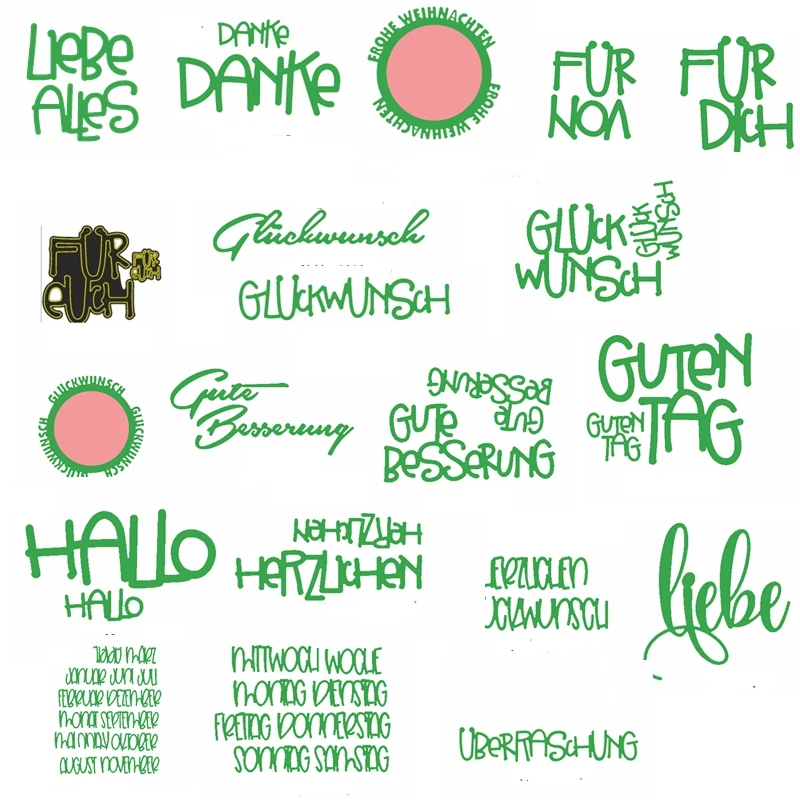 LiEBE
ALLES
DANKE
DANKE
FROHE WEIHNACHTEN
FROHE WEIHNACHTEN
FÜR
VON
FÜR
DiCH
FÜR
EUCH
FÜR
EUCH
Glückwunsch
GLÜCKWUNSCH
GLÜCK
WUNSCH
GLÜCK
WUNSCH
GLÜCKWUNSCH
GLÜCKWUNSCH
GLÜCKWUNSCH
GLÜCKWUNSCH
Gute
Besserung
GUTE
BESSERUNG
GUTE
BESSERUNG
GUTEN
TAG
GUTEN
TAG
HALLO
HALLO
HERZLiCHEN
HERZLiCHEN
liebe
MÄRZ
JANUAR JUNi JULi
FEBRUAR DEZEMBER
MONAT SEPTEMBER
MAi OKTOBER
AUGUST NOVEMBER
MiTTWOCH WOCHE
MONTAG DiENSTAG
FREiTAG DONNERSTAG
SONNTAG SAMSTAG
ÜBERRASCHUNG